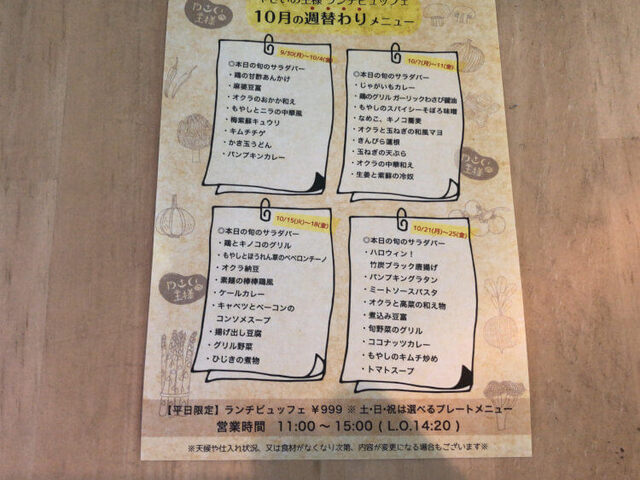 やさいの王様 ランチビュッフェ
10月の週替わりメニュー
やさいの王様
9/30(月)〜10/4(金)
◎本日の旬のサラダバー
・鶏の甘酢あんかけ
・麻婆豆腐
・オクラのおかか和え
・もやしとニラの中華風
・梅紫蘇キュウリ
・キムチチゲ
・かき玉うどん
・パンプキンカレー
10/7(月)〜11(金)
◎本日の旬のサラダバー
・じゃがいもカレー
・鶏のグリル ガーリックわさび醤油
・もやしのスパイシーそぼろ味噌
・なめこ、キノコ蕎麦
・オクラと玉ねぎの和風マヨ
・きんぴら蓮根
・玉ねぎの天ぷら
・オクラの中華和え
・生姜と紫蘇の冷奴
やさいの王様
10/15(火)〜18(金)
◎本日の旬のサラダバー
・鶏とキノコのグリル
・もやしとほうれん草のペペロンチーノ
・オクラ納豆
・素麺の棒棒鶏風
・ケールカレー
・キャベツとベーコンの
コンソメスープ
・揚げ出し豆腐
・グリル野菜
・ひじきの煮物
やさいの王様
10/21(月)〜25(金)
◎本日の旬のサラダバー
・ハロウィン！
竹炭ブラック唐揚げ
・パンプキングラタン
・ミートソースパスタ
・オクラと高菜の和え物
・煮込み豆腐
・旬野菜のグリル
・ココナッツカレー
・もやしのキムチ炒め
・トマトスープ
【平日限定】ランチビュッフェ ¥999 ※ 土・日・祝は選べるプレートメニュー
営業時間 11:00〜15:00 ( L.O.14:20 )
※天候や仕入れ状況、又は食材がなくなり次第、内容が変更になる場合もございます※